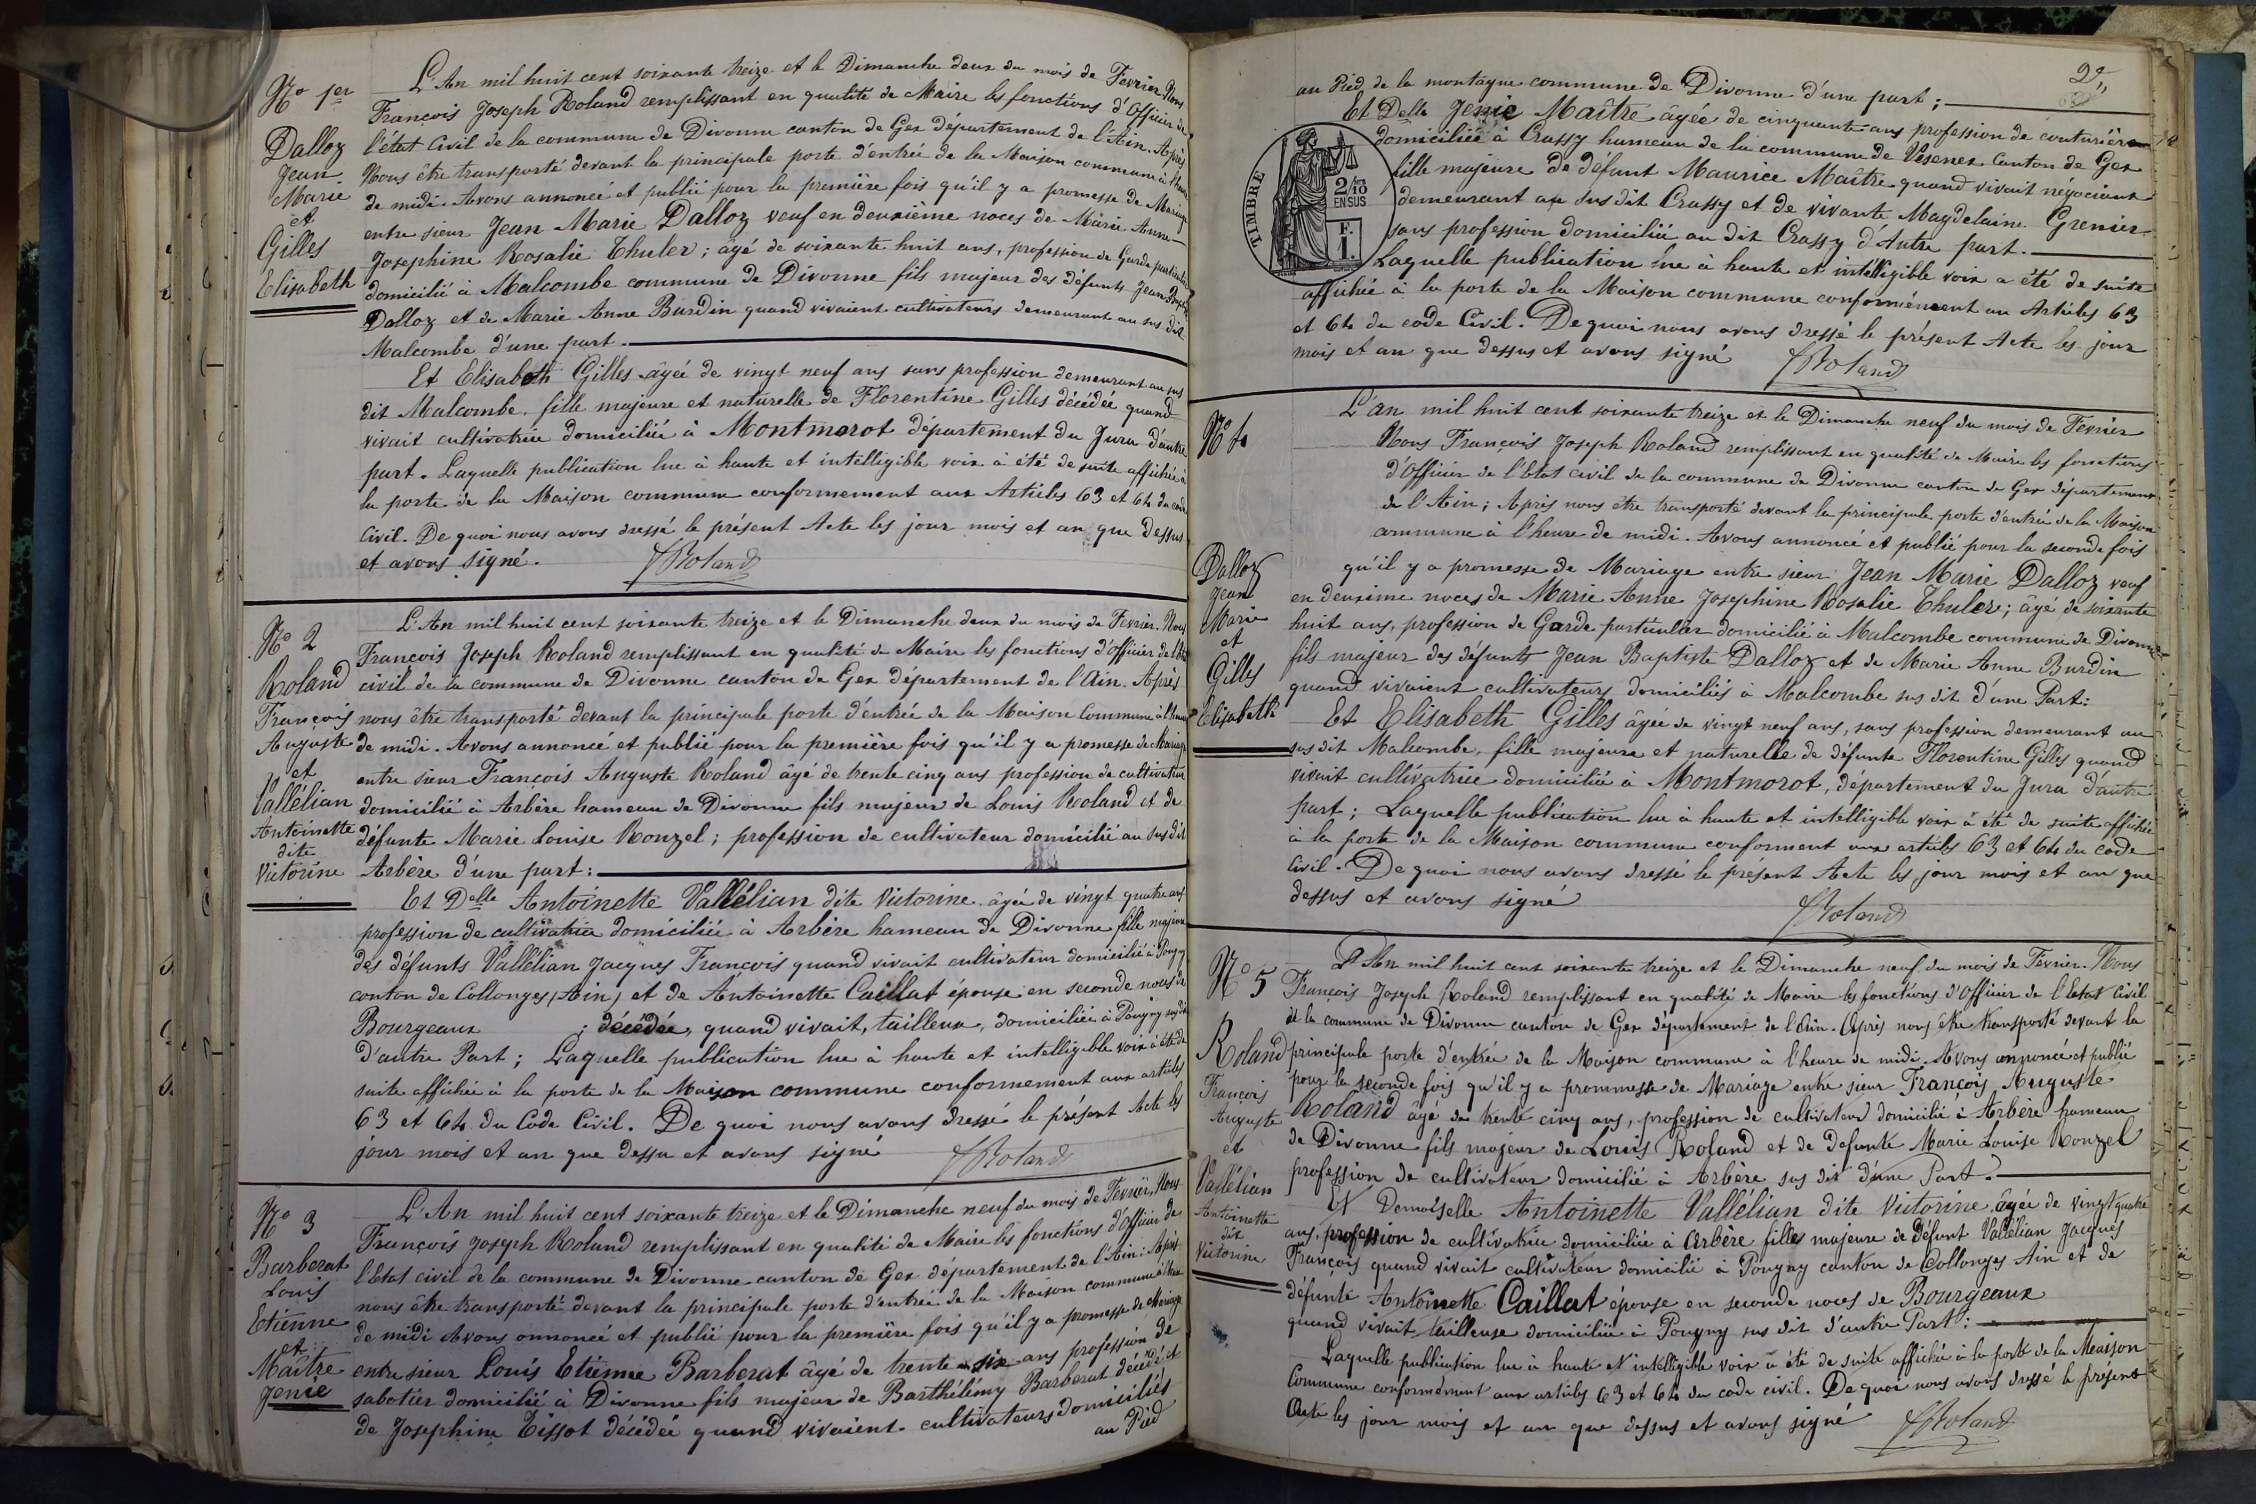 No 1er
Dalloz
Jean
Marie
et
Gilles
Elisabeth
L'An mil huit cent soixante treize et le Dimanche deux du mois de Fevrier. Nous
François Joseph Roland remplissant en qualité de Maire les fonctions d'Officier de
l'état Civil de la commune de Divonne canton de Gex département de l'Ain. Après
Nous être transporté devant la principale porte d'entrée de la Maison commune à l'heure
de midi. Avons annoncé et publié pour la première fois qu'il y a promesse de Mariage
entre sieur Jean Marie Dalloz veuf en deuxième noces de Marie Anne
Josephine Rosalie Thuler; âgé de soixante huit ans, profession de Garde particulier
domicilié à Malcombe commune de Divonne fils majeur des défunts Jean Baptiste
Dalloz et de Marie Anne Burdin quand vivaient cultivateurs demeurant au sus dit
Malcombe d'une part.
Et Elisabeth Gilles âgée de vingt neuf ans sans profession demeurant au sus
dit Malcombe, fille majeure et naturelle de Florentine Gilles décédée quand
vivait cultivatrice domiciliée à Montmorot département du Jura d'autre
part. Laquelle publication lue à haute et intelligible voix à été de suite affichée à
la porte de la Maison commune conformement aux Articles 63 et 64 du code
Civil. De quoi nous avons dressé le présent Acte les jour mois et an que Dessus
et avons signé.
JRoland
No 2
Roland
François
Auguste
et
Vallélian
Antoinette
dite
Victorine
L'An mil huit cent soixante treize et le Dimanche deux du mois de Fevrier. Nous
François Joseph Roland remplissant en qualité de Maire les fonctions d'officier de l'état
civil de la commune de Divonne canton de Gex département de l'Ain. Après
nous être transporté devant la principale porte d'entrée de la Maison Commune à l'heure
de midi. Avons annoncé et publié pour la première fois qu'il y a promesse de Mariage
entre sieur François Auguste Roland âgé de trente cinq ans profession de cultivateur
domicilié à Arbère hameau de Divonne fils majeur de Louis Roland et de
défunte Marie Louise Ronzel; profession de cultivateur domicilié au sus dit
Arbère d'une part:
Et Delle Antoinette Vallélian dite Victorine âgée de vingt quatre ans
profession de cultivatrice domiciliée à Arbère hameau de Divonne fille majeure
des défunts Vallélian Jacques François quand vivait cultivateur domicilié à Pougny
canton de Collonges (Ain) et de Antoinette Caillat épouse en seconde noces de
Bourgeaux ; décédée, quand vivait, tailleuse, domiciliée à Pougny sus dit
d'autre Part; Laquelle publication lue à haute et intelligible voix à été de
suite affichée à la porte de la Maison commune conformement aux articles
63 et 64 du Code Civil. De quoi nous avons dressé le présent Acte les
jour mois et an que dessu et avons signé
JRoland
No 3
Barberat
Louis
Etienne
et
Maître
Jenie
L'An mil huit cent soixante treize et le Dimanche neuf du mois de Fevrier. Nous
François Joseph Roland remplissant en qualité de Maire les fonctions d'Officier de
l'Etat civil de la commune de Divonne canton de Gex departement de l'Ain: Après
nous être transporté devant la principale porte d'entrée de la Maison commune à l'heure
de midi Avons annoncé et publié pour la première fois qu'il y a promesse de Mariage
entre sieur Louis Etienne Barberat âgé de trente six ans profession de
sabotier domicilié à Divonne fils majeur de Barthélémy Barberat décédé et
de Josephine Tissot décédée quand vivaient cultivateurs domiciliés
au Pied
au Pied de la montagne commune de Divonne d'une part;
Et Delle Jenie Maître âgée de cinquante ans profession de couturière
domiciliée à Crassy hameau de la commune de Vesenex Canton de Gex
fille majeure de défunt Maurice Maître quand vivait négociant
demeurant au sus dit Crassy et de vivante Magdelaine Grenier
sans profession domiciliée au dit Crassy d'Autre part.
Laquelle publication lue à haute et intelligible voix a été de suite
affichée à la porte de la Maison commune conformément au Articles 63
et 64 du code Civil. De quoi nous avons dressé le présent Acte les jour
mois et an que dessus et avons signé
JRoland
TIMBRE
2/10
EN SUS
F.
1.
No 4
Dalloz
Jean
Marie
et
Gilles
Elisabeth
L'an mil huit cent soixante treize et le Dimanche neuf du mois de Fevrier
Nous François Joseph Roland remplissant en qualité de Maire les fonctions
d'Officier de l'Etat civil de la commune de Divonne canton de Gex département
de l'Ain; Après nous être transporté devant la principale porte d'entrée de la Maison
commune à l'heure de midi. Avons annoncé et publié pour la seconde fois
qu'il y a promesse de Mariage entre sieur Jean Marie Dalloz veuf
en deuxième noces de Marie Anne Josephine Rosalie Thuler; âgé de soixante
huit ans, profession de Garde particulier domicilié à Malcombe commune de Divonne
fils majeur des défunts Jean Baptiste Dalloz et de Marie Anne Burdin
quand vivaient cultivateurs domiciliés à Malcombe sus dit d'une Part:
Et Elisabeth Gilles âgée de vingt neuf ans, sans profession demeurant au
sus dit Malcombe, fille majeure et naturelle de défunte Florentine Gilles quand
vivait cultivatrice domiciliée à Montmorot, département du Jura d'autre
part; Laquelle publication lue à haute et intelligible voix à été de suite affichée
à la porte de la Maison commune conforment aux articles 63 et 64 du code
Civil. De quoi nous avons dressé le présent Acte les jour mois et an que
dessus et avons signé
JRoland
No 5
Roland
François
Auguste
et
Vallélian
Antoinette
dite
Victorine
L'An mil huit cent soixante treize et le Dimanche neuf du mois de Fevrier. Nous
François Joseph Roland remplissant en qualité de Maire les fonctions d'Officier de l'Etat Civil
de la commune de Divonne canton de Gex département de l'Ain. Après nous être transporté devant la
principale porte d'entrée de la Maison commune à l'heure de midi. Avons annoncé et publié
pour la seconde fois qu'il y a prommesse de Mariage entre sieur François Auguste
Roland âgé de trente cinq ans, profession de cultivateur domicilié à Arbère hameau
de Divonne fils majeur de Louis Roland et de Defunte Marie Louise Ronzel
profession de cultivateur domicilié à Arbère sus dit d'une Part.
Et Demoiselle Antoinette Vallélian dite Victorine âgée de vingt quatre
ans, profession de cultivatrice domiciliée à Arbère filles majeure de défunt Vallélian Jacques
François quand vivait cultivateur domicilié à Pougny canton de Collonges Ain et de
défunte Antoinette Caillat épouse en seconde noces de Bourgeaux
quand vivait tailleuse domiciliée à Pougny sus dit d'autre Part:
Laquelle publication lue à haute et intelligible voix a été de suite affichée à la porte de la Maison
Commune conformément aux articles 63 et 64 du code civil. De quoi nous avons dressé le présent
Acte les jour mois et an que dessus et avons signé
JRoland